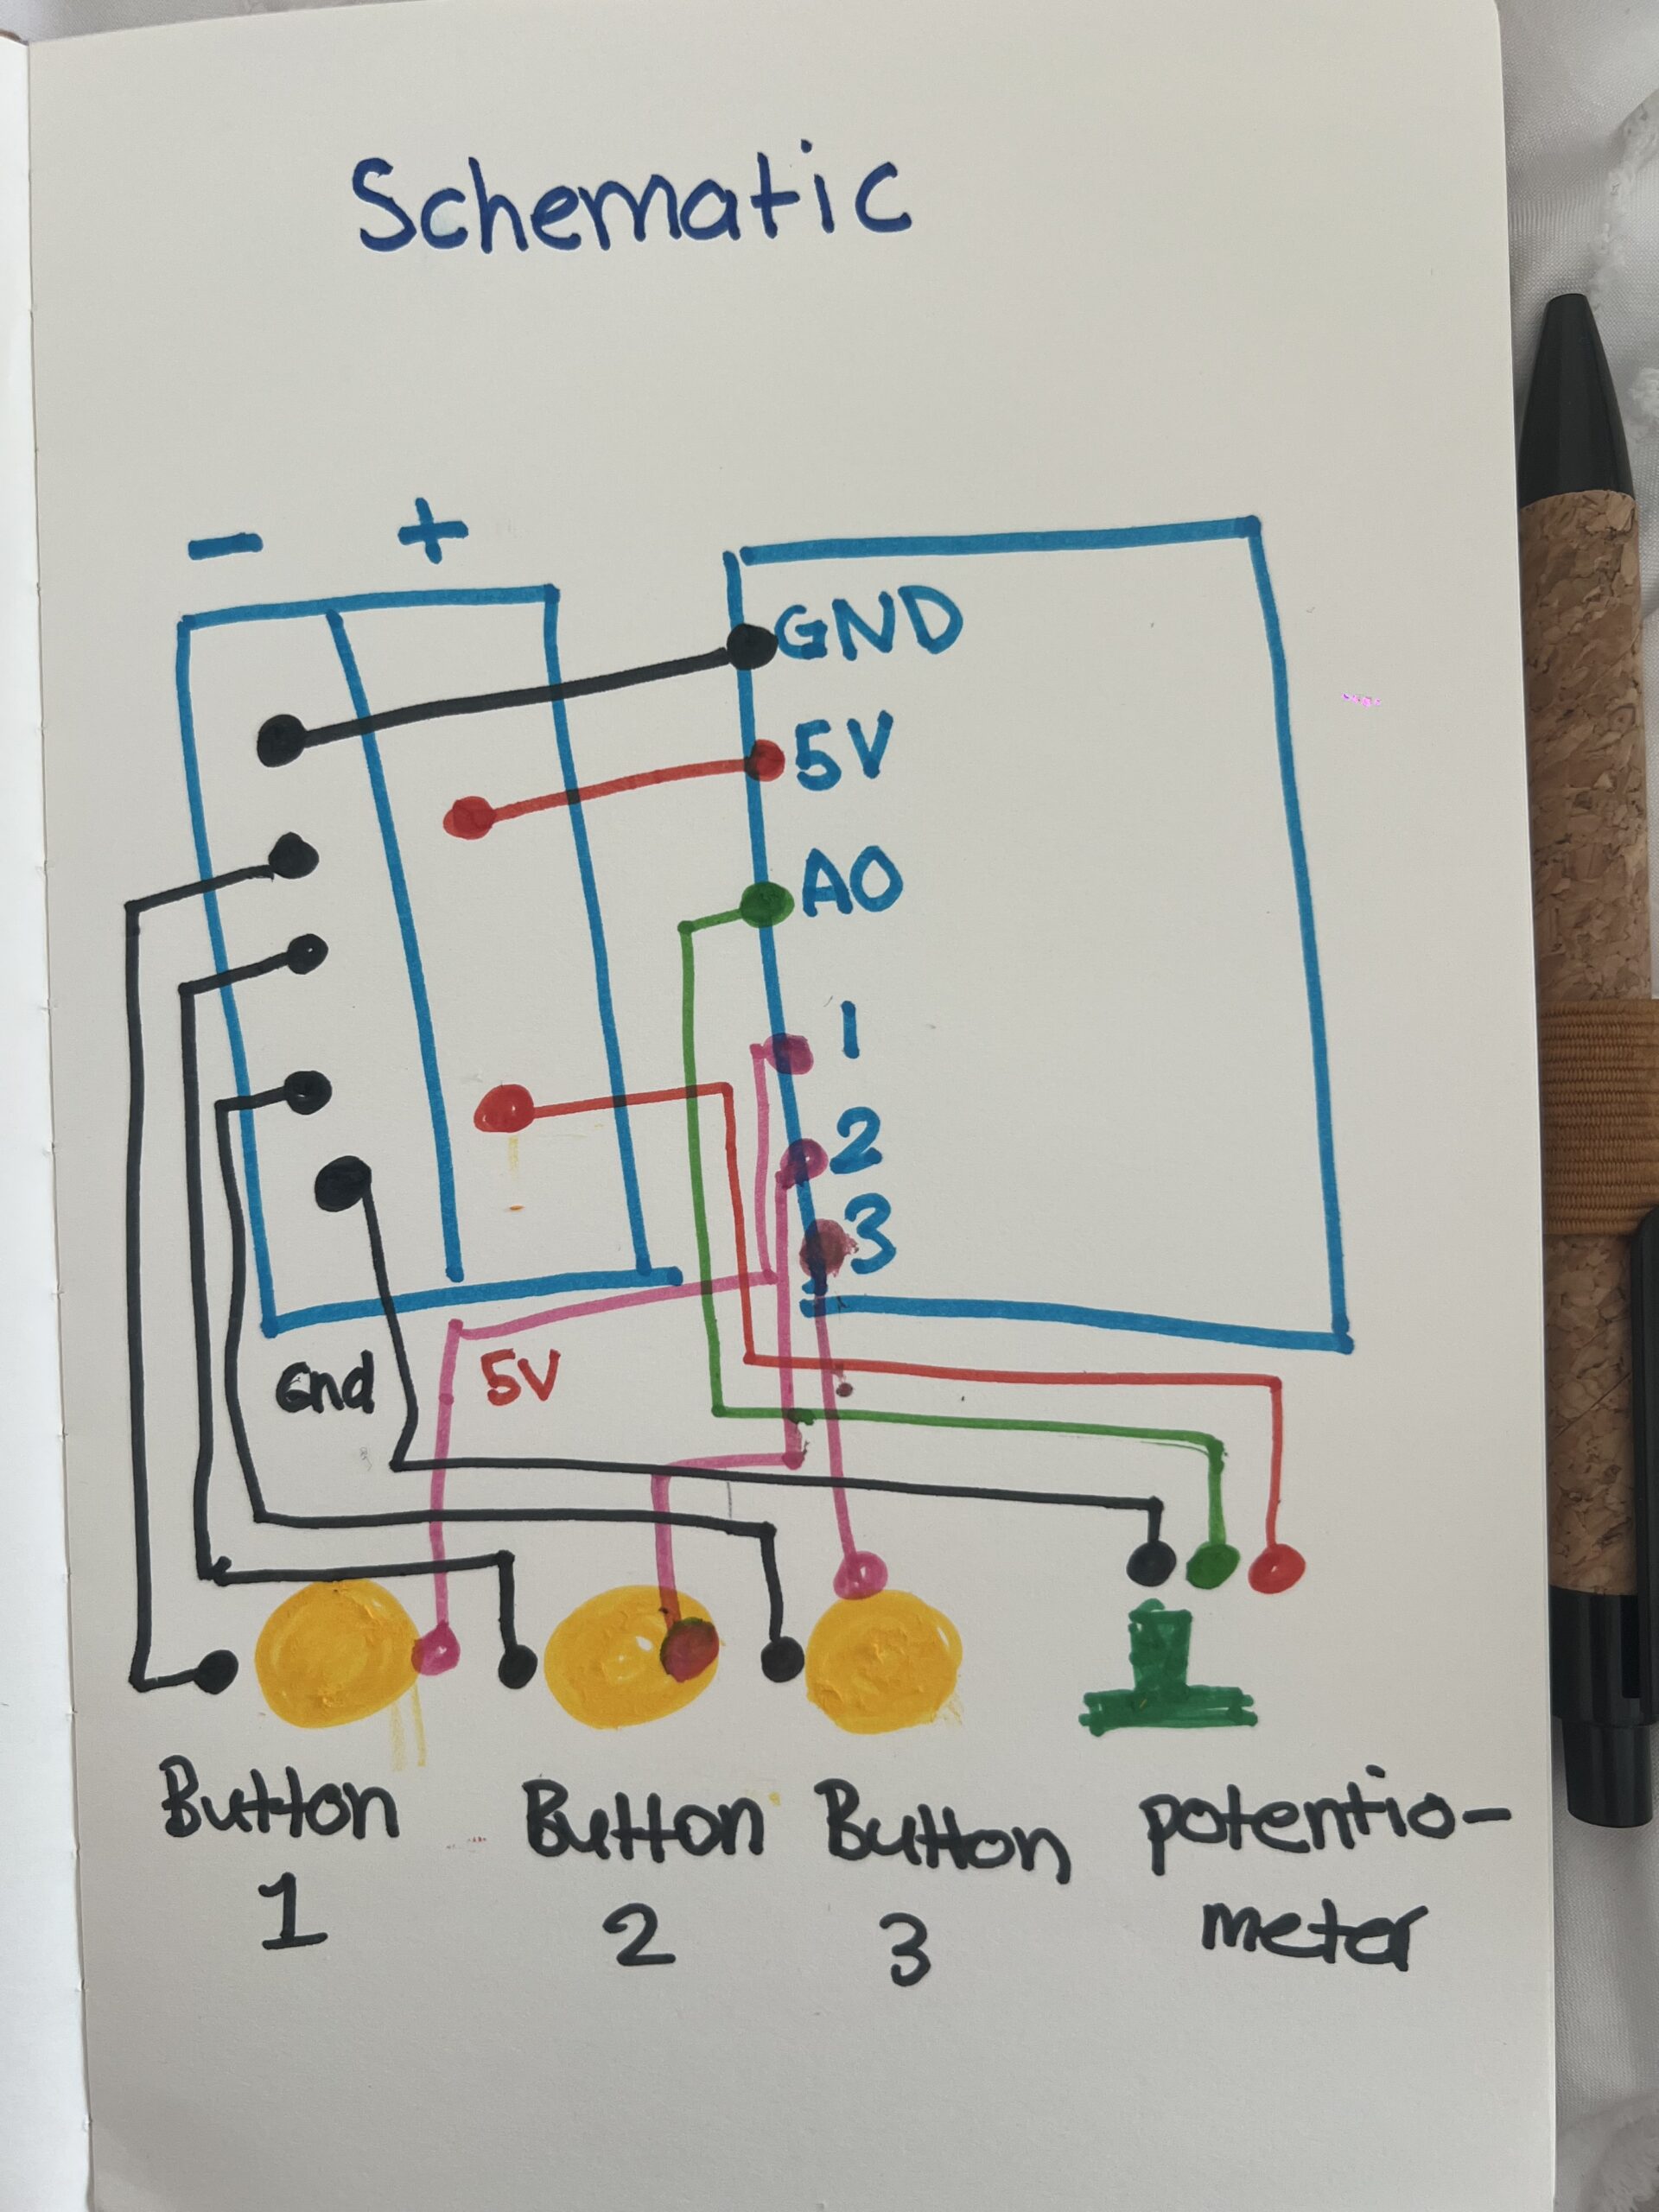 Schematic
- +
GND
5V
A0
1
2
3
Gnd 5V
Button Button Button potentio-
1 2 3 meter